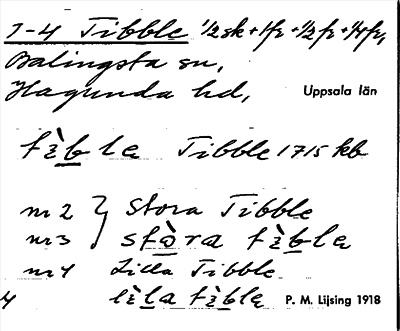 1-4 Tibble 1/2 sk + 1 fr + 1/2 fr + 1/4 fr,
Balingsta sn,
Hagunda hd, Uppsala län
tìb̲le Tibble 1715 kb
nr 2 } Stora Tibble
nr 3 stò̲ra tìb̲le
nr 4 Lilla Tibble
4 lìl̲a tìb̲le P. M. Lijsing 1918